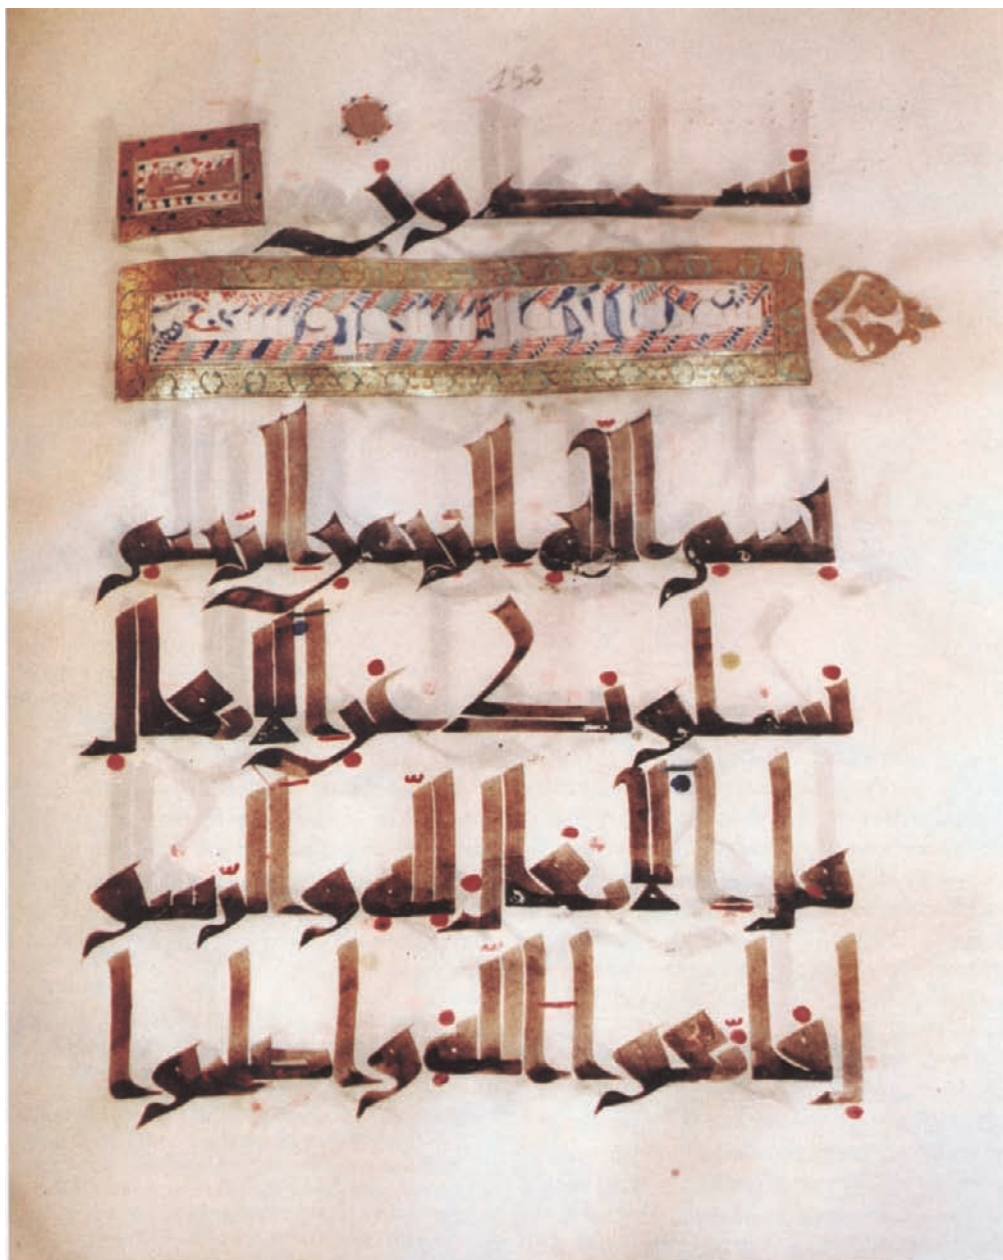 152
يسجدون
سورة الانفال
بسم الله الرحمن الرحيم
يسلونك عن الانفال
قل الانفال لله والرسو
ل فاتقوا الله واصلحوا